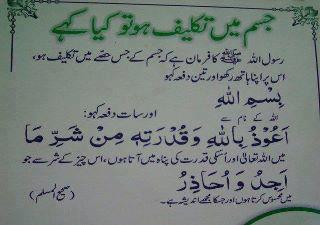 جسم میں تکلیف ہو تو کیا کہے
رسول اللہ ﷺ کا فرمان ہے کہ جسم کے جس حصے میں تکلیف ہو،
اس پر اپنا ہاتھ رکھو اور تین دفعہ کہو
بِسْمِ اللهِ
اللہ کے نام سے
اور سات دفعہ کہو:
اَعُوْذُ بِاللهِ وَقُدْرَتِهٖ مِنْ شَرِّ مَا
میں اللہ تعالیٰ اور اُسکی قدرت کی پناہ میں آتا ہوں، اس چیز کے شر سے جو
اَجِدُ وَ اُحَاذِرُ
میں محسوس کرتا ہوں اور جسکا مجھے اندیشہ ہے۔
(صحیح المسلم)